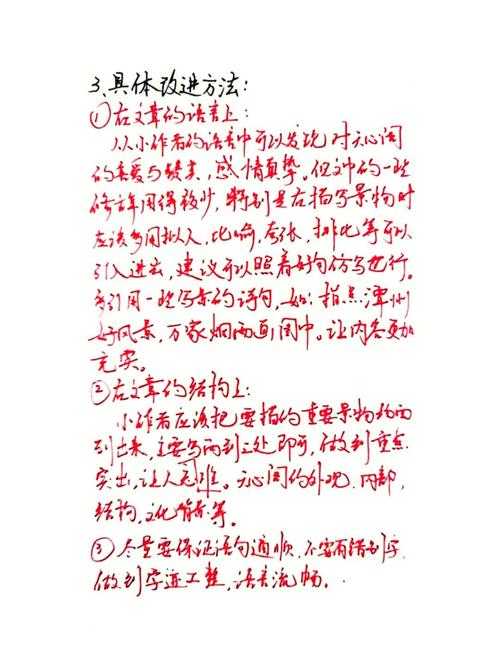 3、具体改进方法：
①在文章的语言上：
从小作者的语言中可以发现对天心阁
的喜爱与赞美，感情真挚。但文中的一些
修辞用得较少，特别是在描写景物时
应该多用拟人，比喻，夸张，排比等可以
引入进去，建议可以照着好句仿写也行。
多引用一些写景的诗句，如：指点潭州
好风景，万家烟雨画图中。让内容更加
充实。
②在文章的结构上：
小作者应该把要描的重要景物
到出来，主要写两到三处即可，做到重点
突出，让人。天心阁的外观、内部，
结构，文化背景等。
③尽量要保证语句通顺，不要有错别字，
做到字迹工整，语言流畅。